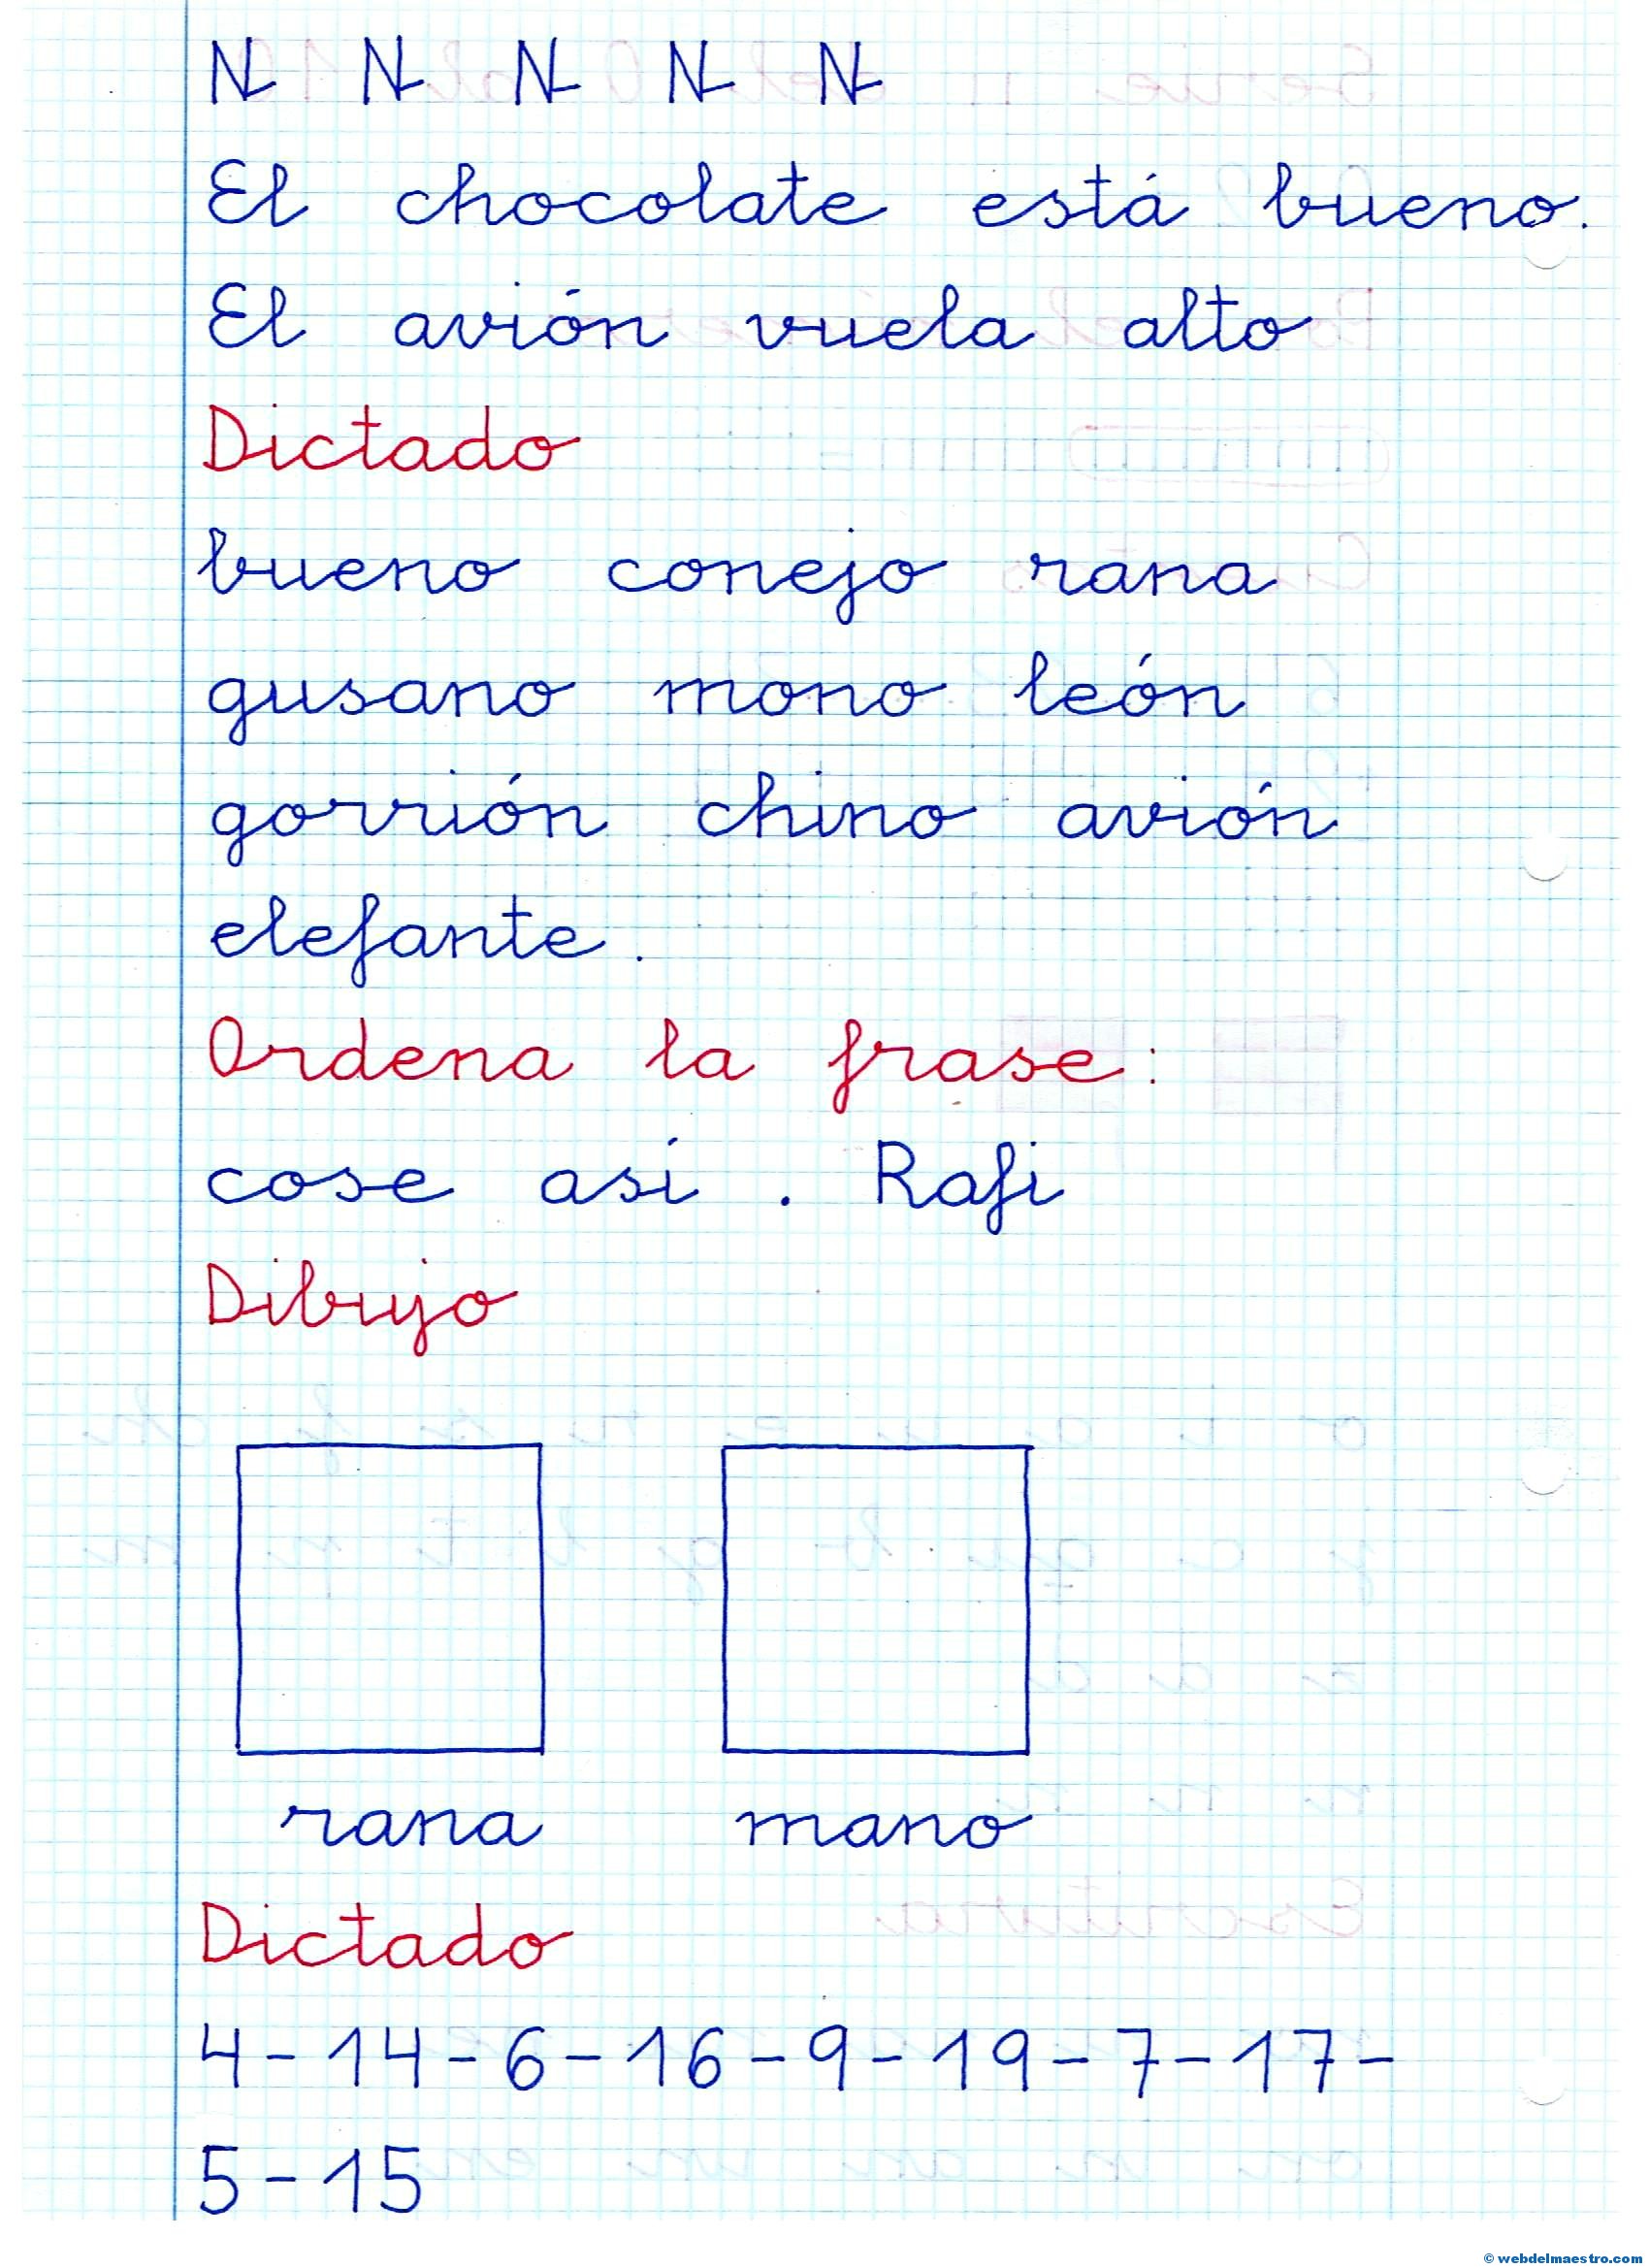 N N N N N
El chocolate está bueno.
El avión vuela alto
Dictado
bueno conejo rana
gusano mono león
gorrión chino avión
elefante.
Ordena la frase:
cose así . Rafi
Dibujo
rana mano
Dictado
4-14-6-16-9-19-7-17-
5-15
© webdelmaestro.com